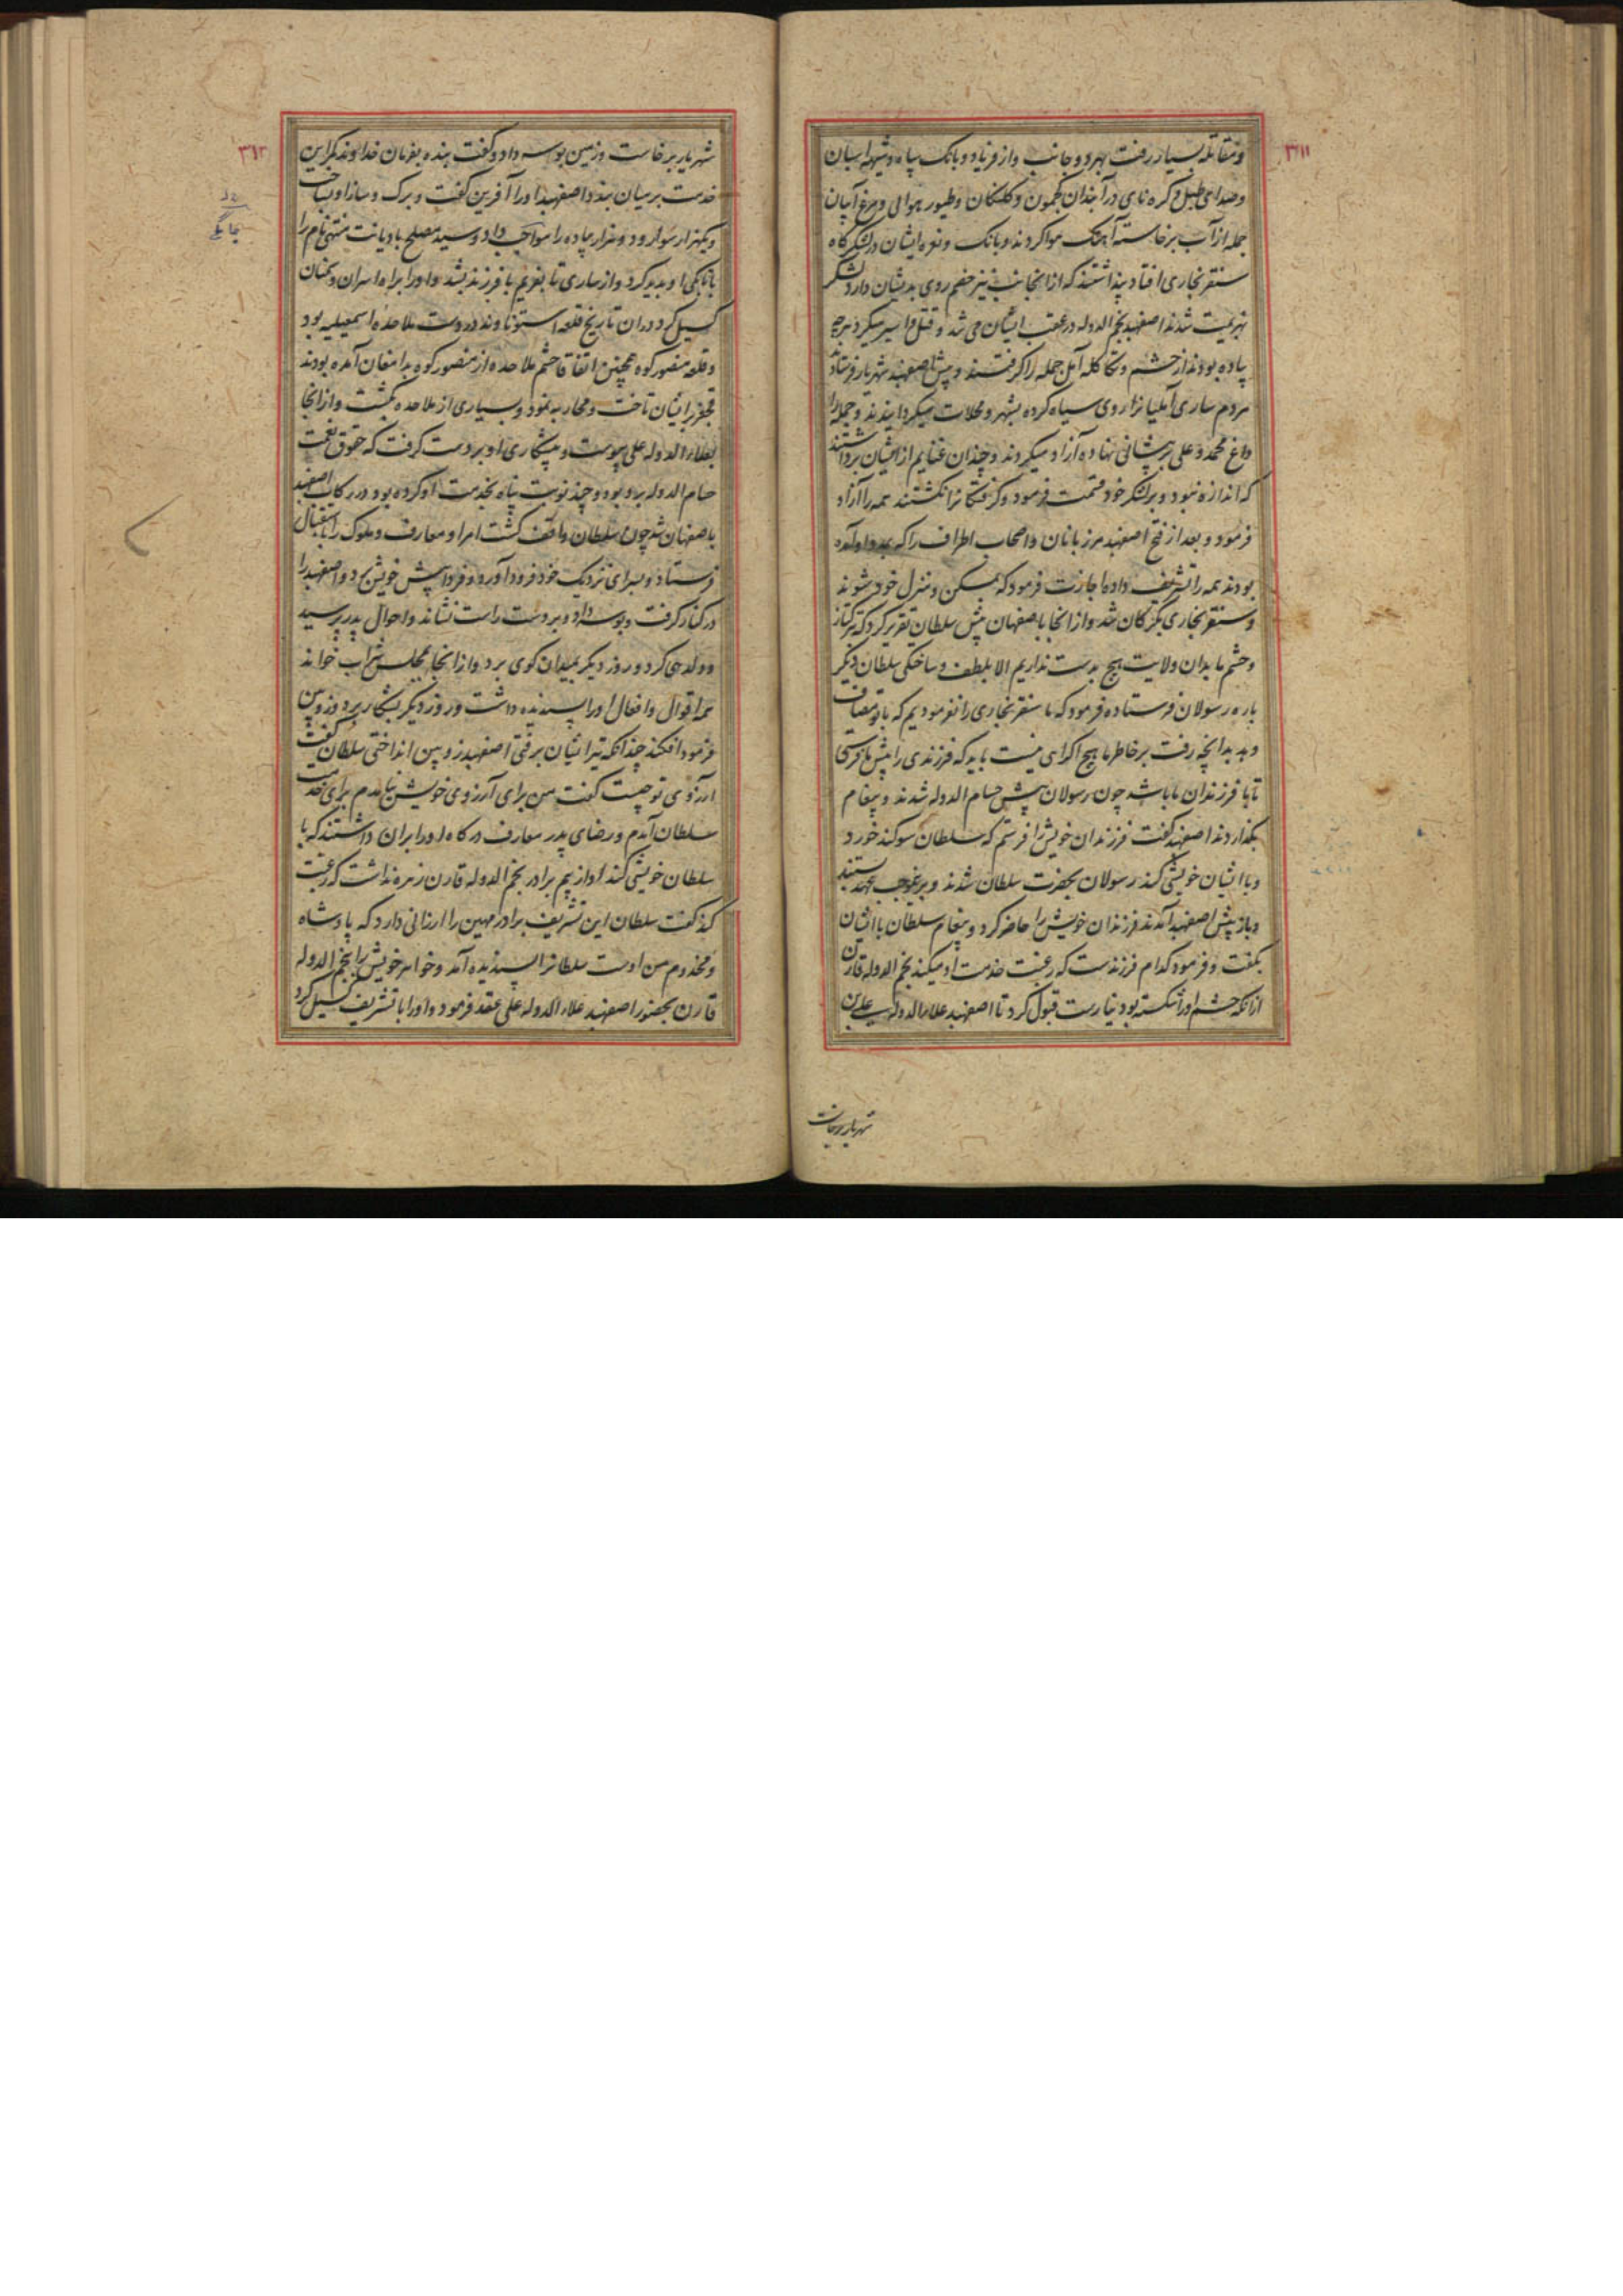 ۳۱۱
و مقاتله بسیار رفت بهر دو جانب و از فریاد و بانک سپاه و شیهه اسبان
و صدای طبل و کره نای در آبندان کجمون و کلنکان و طیور هوائی و مرغ آبیان
جمله از آب برخاسته آهنک هوا کردند و بانک و نعره ایشان در لشکرگاه
سنقر بخاری افتاد پنداشتند که از آنجانب نیز خصم روی بدیشان دارد لشکر
بهزیمت شدند اصفهبد نجم الدوله در عقب ایشان می شد و قتل و اسیر میکرد هرچه
پیاده بودند از حشم و تکاکله آمل جمله را کرفتند و پیش اصفهبد شهریار فرستاد
مردم ساری آملیانرا روی سیاه کرده بشهر و محلات میکردانیدند و جمله را
داغ محمد و علی بر پیشانی نهاده آزاد میکردند و چندان غنایم از ایشان برداشتند
که اندازه نبود و بر لشکر خود قسمت فرمود و کرفتکانرا نکشتند همه را آزاد
فرمود و بعد از فتح اصفهبد مرزبانان و اصحاب اطراف را که بمدد او آمده
بودند همه را تشریف داده اجازت فرمود که بمسکن و منزل خود شوند
و سنقر بخاری بکرکان شد و از آنجا باصفهان پیش سلطان تقریر کرد که بترکتاز
و حشم ما بدان ولایت هیچ بدست نداریم الا بلطف و ساختکی سلطان دیکر
باره رسولان فرستاده فرمود که ما سنقر بخاری را نفرمودیم که با تو مصاف
و بد بدانچه رفت بر خاطر ما هیچ اکراهی نیست باید که فرزندی را پیش ما فرستی
تا با فرزندان ما باشد چون رسولان پیش حسام الدوله شدند و پیغام
بکذاردند اصفهبد کفت فرزندان خویش را فرستم که سلطان سوکند خورد
و با ایشان خویشی کند رسولان بحضرت سلطان شدند و برینموجب عهد بستند
و باز پیش اصفهبد آمدند فرزندان خویش را حاضر کرد و پیغام سلطان با ایشان
بکفت و فرمود کدام فرزندست که رغبت خدمت او میکند نجم الدوله قارن
از آنکه حشم او را شکسته بود نیارست قبول کرد تا اصفهبد علاء الدوله علی بن
شهریار برخاست
۳۱۲
شهریار برخاست و زمین بوسه داد و کفت بنده بفرمان خداوند کمر این
خدمت بر میان بندد اصفهبد او را آفرین کفت و برک و ساز او بساخت
و یکهزار سوار و دو هزار پیاده را مواجب داد و سید مصلح با دیانت منتهی نام را
باتابکی او پدید کرد و از ساری تا بغریم با فرزند بشد و او را براه اسران و سمنان
کسیل کرد در آن تاریخ قلعه استوناوند در دست ملاحده اسمعیلیه بود
و قلعه منصور کوه همچنین اتفاقا حشم ملاحده از منصور کوه بدامغان آمده بودند
قجغر بر ایشان تاخت و محاربه نمود و بسیاری از ملاحده بکشت و از آنجا
بعلاء الدوله علی پیوست و پیشکاری او بر دست کرفت که حقوق نعمت
حسام الدوله برو بود و چند نوبت پناه بخدمت او کرده بود در رکاب اصفهبد
باصفهان شد چون سلطان واقف کشت امرا و معارف و ملوک را باستقبال
فرستاد و بسرای نزدیک خود فرود آورد و فردا پیش خویش برد و اصفهبد را
در کنار کرفت و بوسه داد و بر دست راست نشاند و احوال پدر پرسید
و ولدجی کرد و روز دیکر بمیدان کوی برد و از آنجا بمجلس شراب خواند
همه اقوال و افعال او را پسندیده داشت و روز دیکر بشکار برد و زوپین
فرمود افکند چندانکه تیر ایشان برفتی اصفهبد زوپین انداختی سلطان کفت
آرزوی تو چیست کفت من برای آرزوی خویش نیامدم برای خدمت
سلطان آمدم و رضای پدر معارف درکاه او را بر آن داشتند که با
سلطان خویشی کند او از بیم برادر نجم الدوله قارن زهره نداشت که رغبت
کند کفت سلطان این تشریف برادر مهین را ارزانی دارد که پادشاه
و مخدوم من اوست سلطانرا پسندیده آمد و خواهر خویش را بنجم الدوله
قارن بحضور اصفهبد علاء الدوله علی عقد فرمود و او را با تشریف کسیل کرد